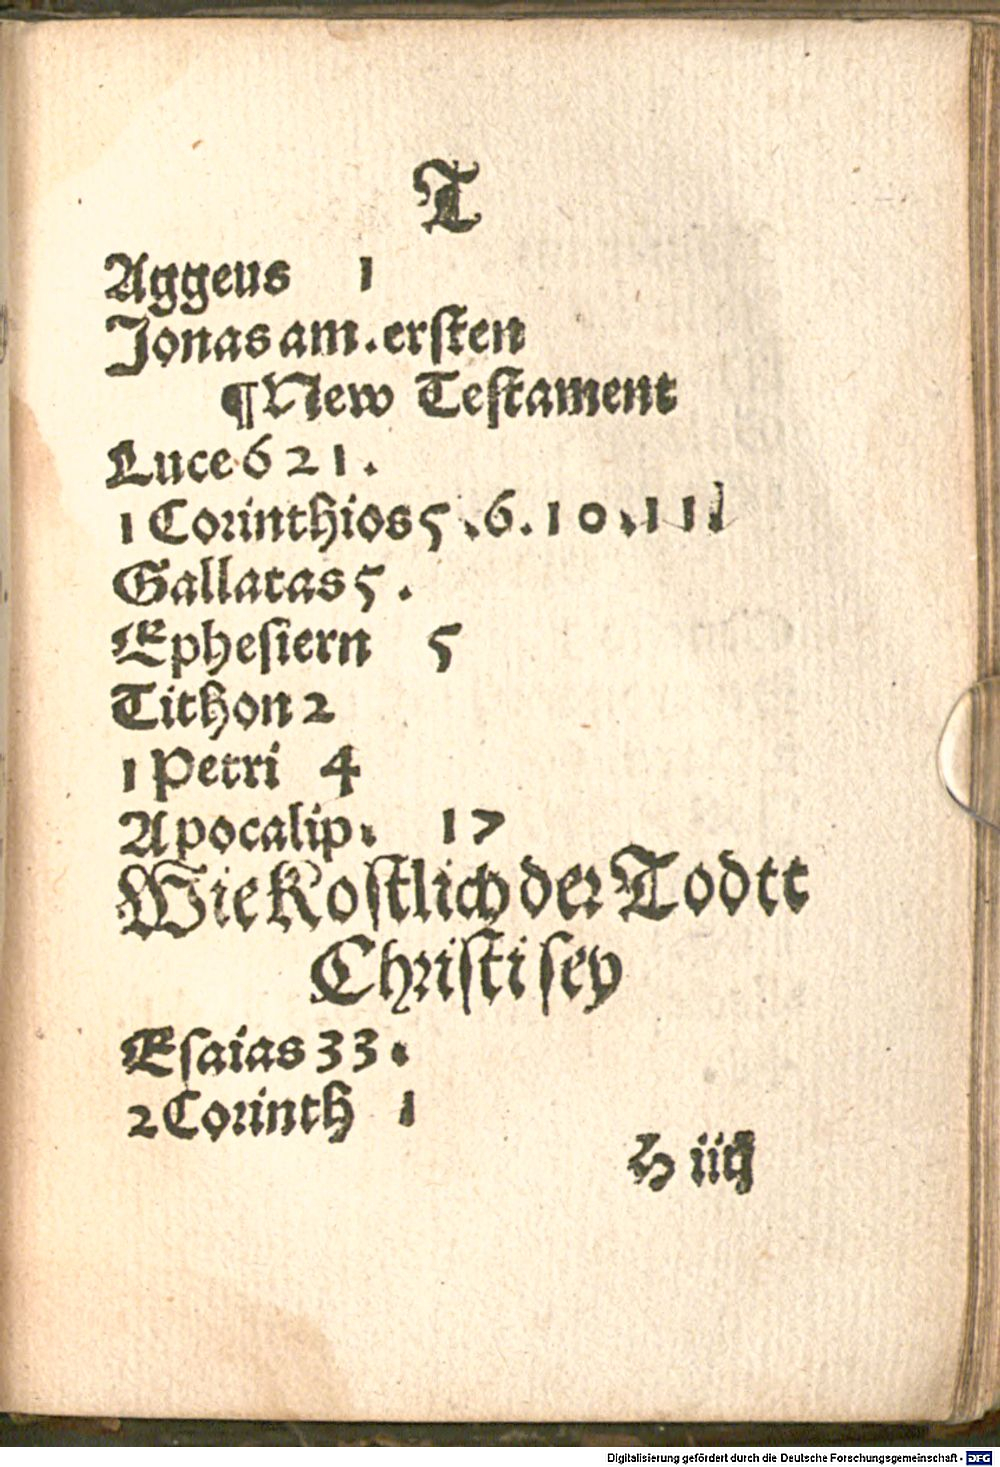 T
Aggeus 1
Jonas am. ersten
¶ New Testament
Luce 6 2 1.
1 Corinthios 5.6.10.11.
Gallatas 5.
Ephesiern 5
Tithon 2
1 Petri 4
Apocalip. 17
Wie Kostlich der Todtt
Christi sey
Esaias 33.
2 Corinth 1
H iij
Digitalisierung gefördert durch die Deutsche Forschungsgemeinschaft - DFG